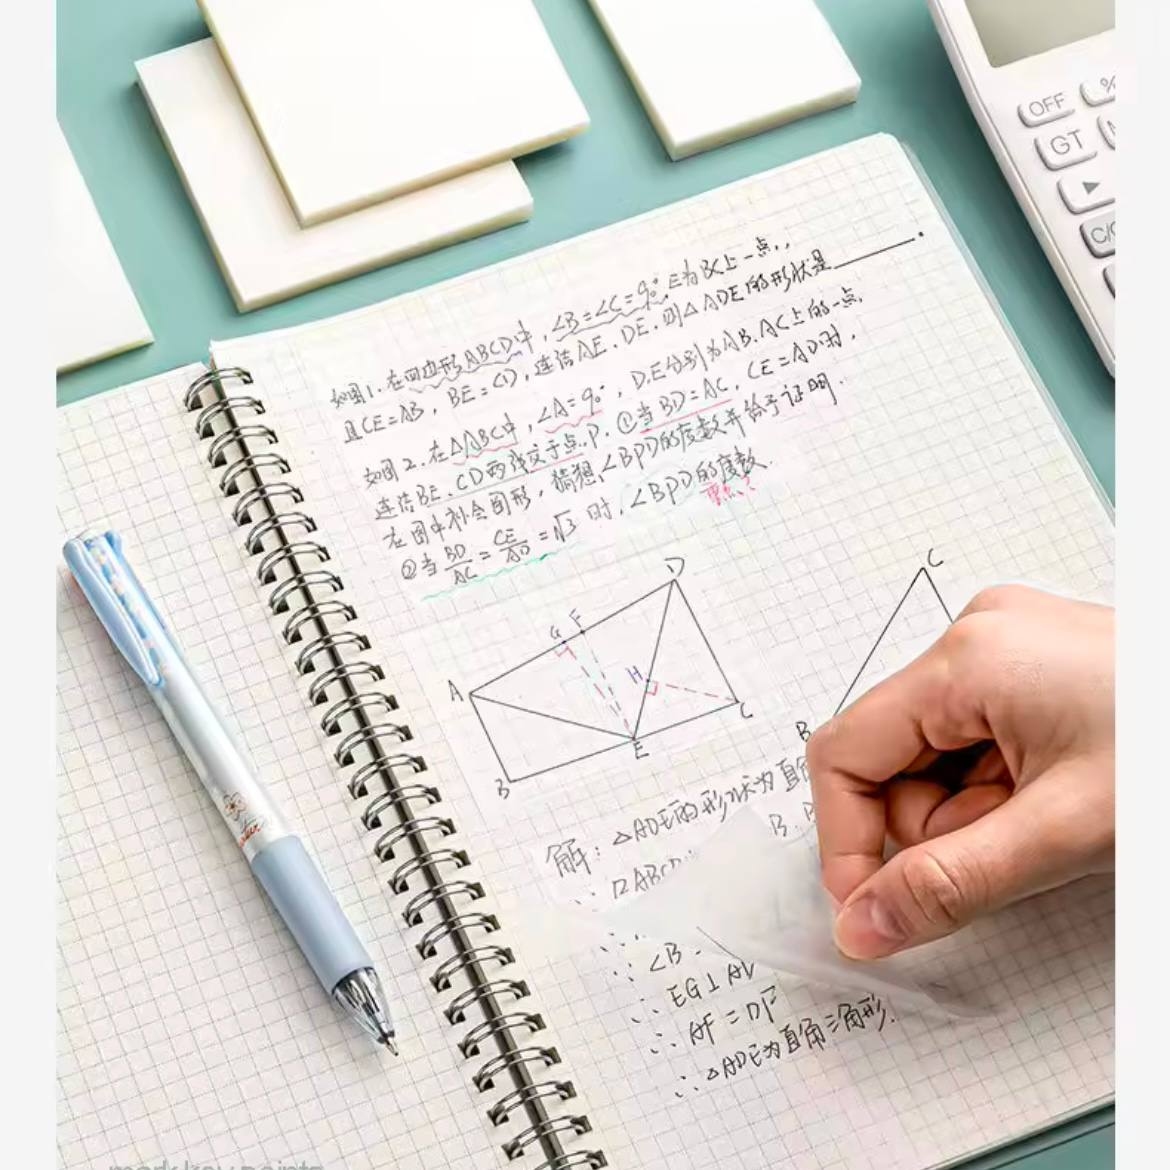 OFF
GT
如图1.在四边形ABCD中,∠B=∠C=90°,E为BC上一点,
且CE=AB,BE=CD,连结AE.DE.则△ADE的形状是
如图2.在△ABC中,∠A=90°,D.E分别为AB.AC上的一点,
连结BE.CD两线交于点P.①当BD=AC,CE=AD时,
在图中补全图形,猜想∠BPD的度数并给予证明.
②当 BD/AC = CE/AD = √3 时,∠BPD的度数.
重点?
D
C
G F
A
H
C
E
B
B
解:△ADE的形状为直角
B.
∵ □ABCD
∴ ∠B
∵ EG⊥AD
∴ AF=DF
∴ △ADE为直角三角形.
mark key points